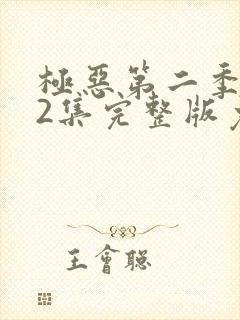 極惡第二季
2集完整版
王會聰